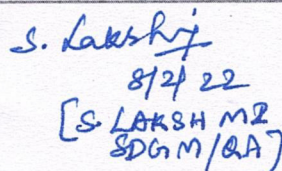 S. Lakshmi
8/2/22
[S. LAKSHMI
SDGM/QA]